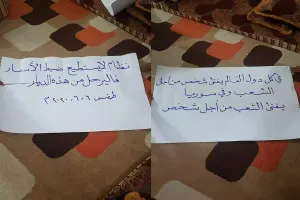 نظام لا يستطيع ضبط الأسعار
فاليرحل من هذه الديار
٢٠٢٠.٦.٦
في كل دول العالم يفنى شخص من أجل
الشعب وفي سوريا
يفنى الشعب من أجل شخص